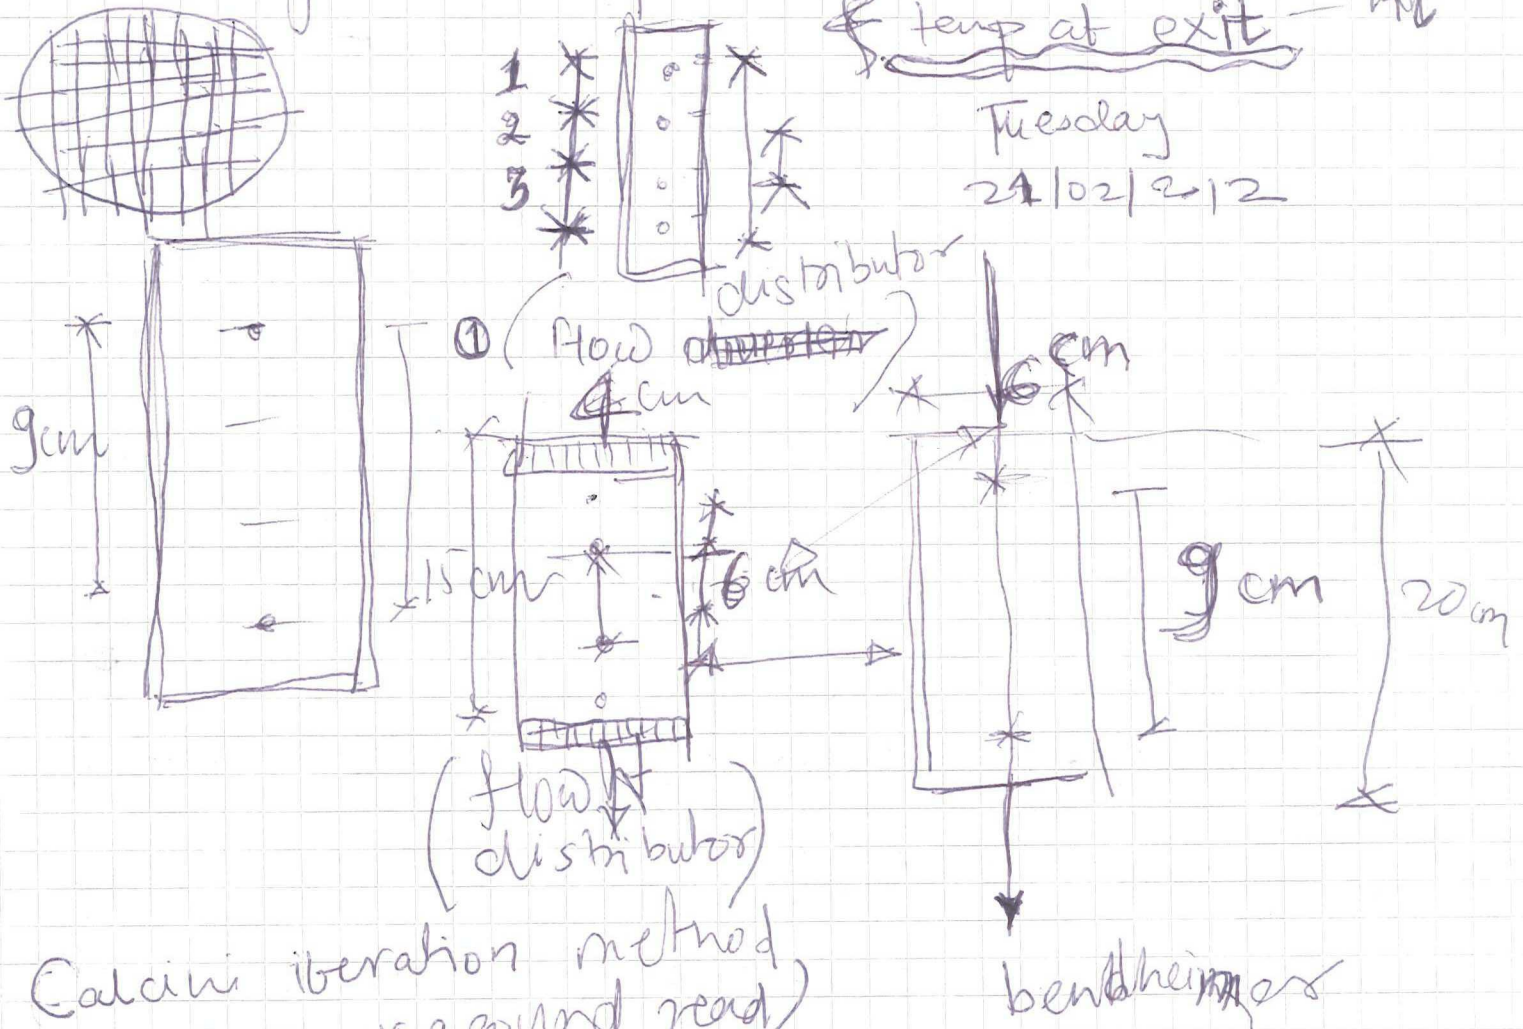 temp at exit
Tuesday
21/02/2012
1
2
3
distributor
① (flow)
4 cm
6 cm
9cm
15 cm
6 cm
9 cm
20cm
(flow
distributor)
iteration method
read)
bentheimer